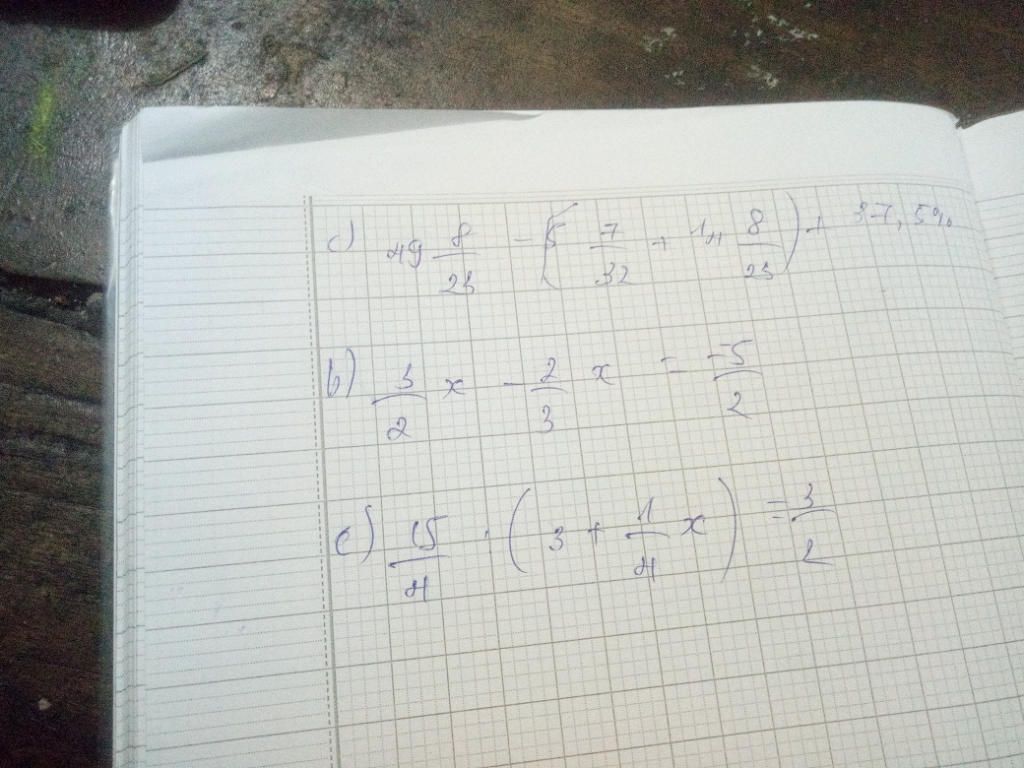 c) 49 8/23 - (5 7/32 + 14 8/23) + 37,5%
b) 3/2 x - 2/3 x = -5/2
c) 15/4 . (3 + 1/4 x) = 3/2